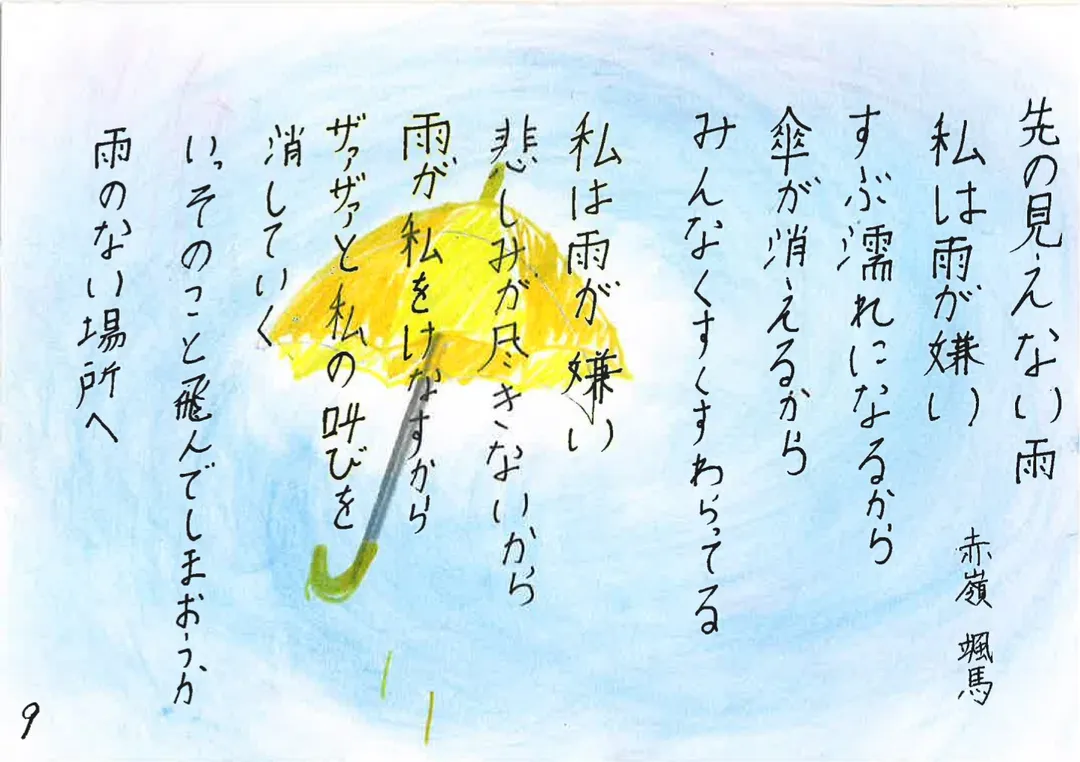 先の見えない雨
赤嶺 颯馬
私は雨が嫌い
すぶ濡れになるから
傘が消えるから
みんなくすくすわらってる
私は雨が嫌い
悲しみが尽きないから
雨が私をけなすから
ザァザァと私の叫びを
消していく
いっそのこと飛んでしまおうか
雨のない場所へ
9